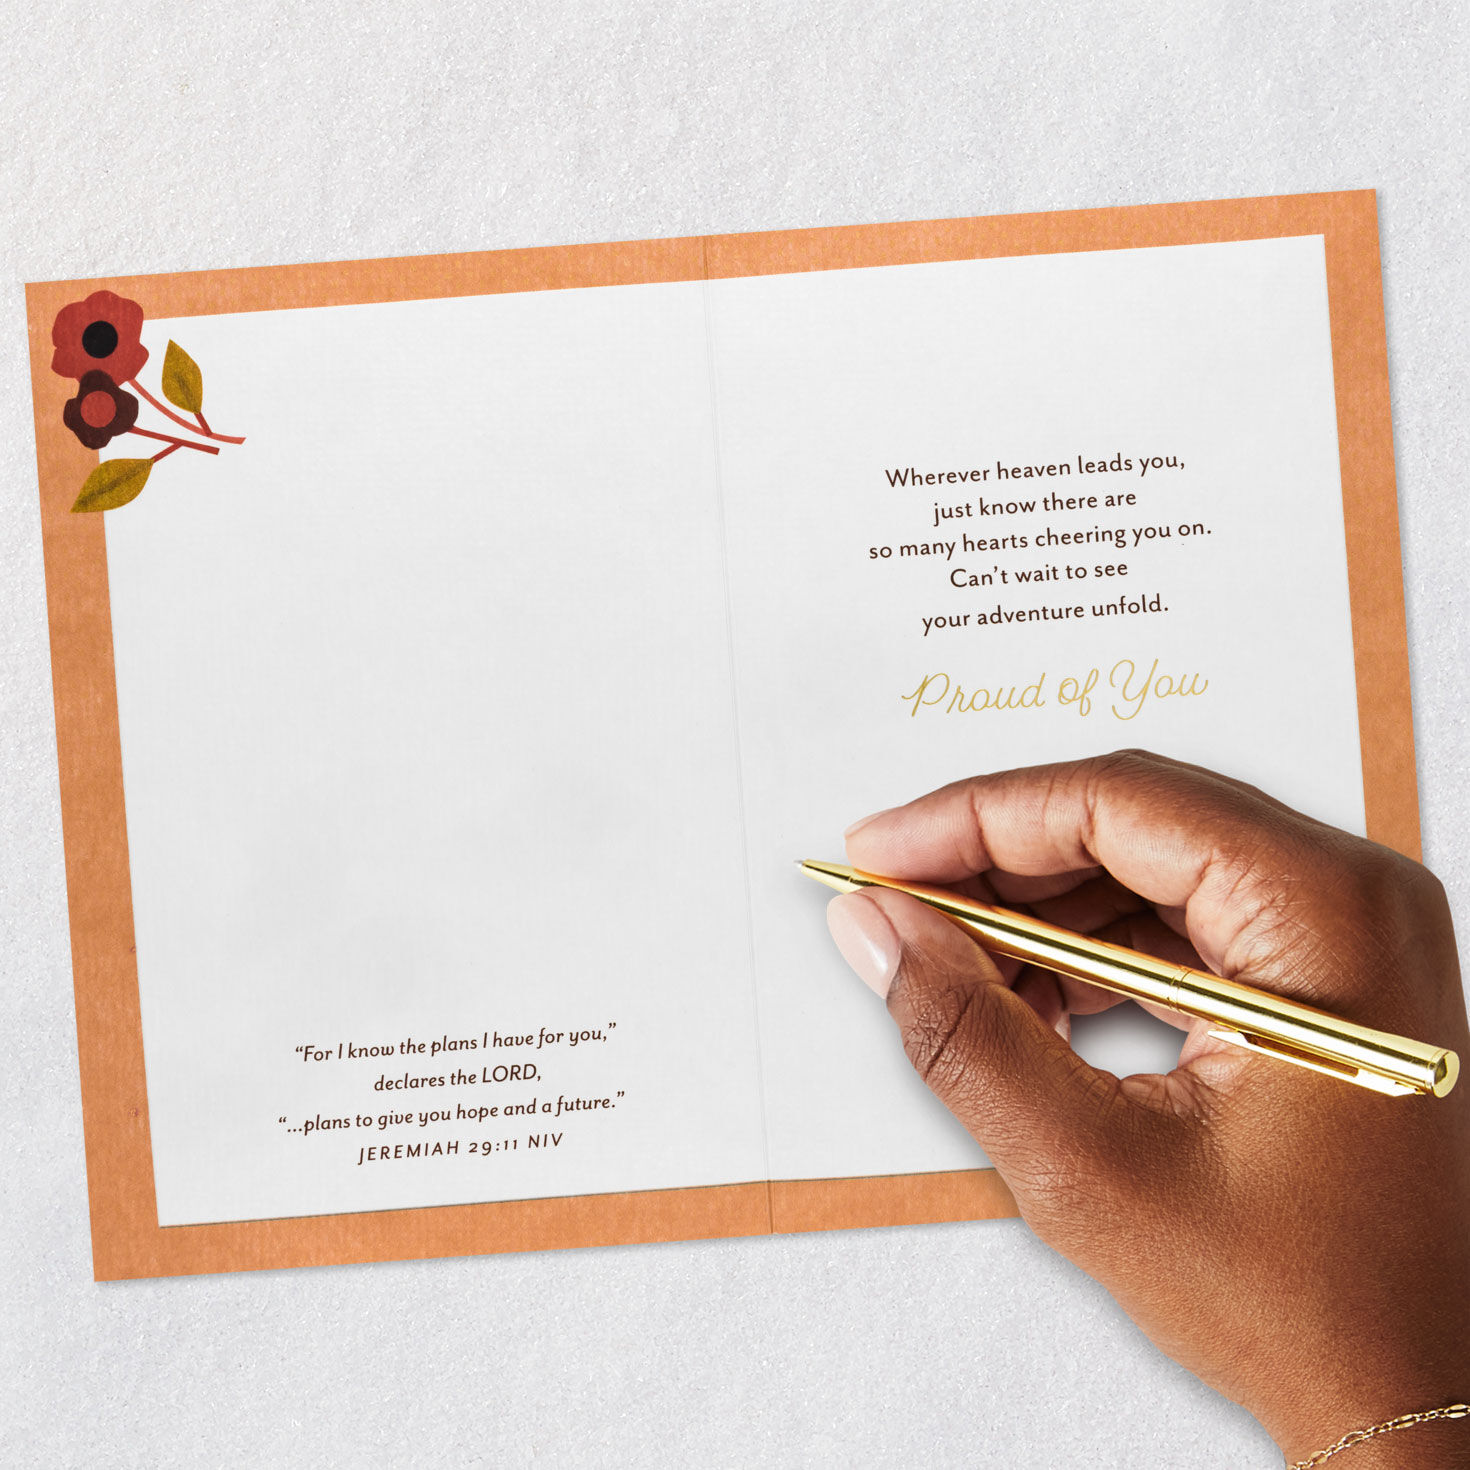 “For I know the plans I have for you,”
declares the LORD,
“...plans to give you hope and a future.”
JEREMIAH 29:11 NIV
Wherever heaven leads you,
just know there are
so many hearts cheering you on.
Can’t wait to see
your adventure unfold.
Proud of You